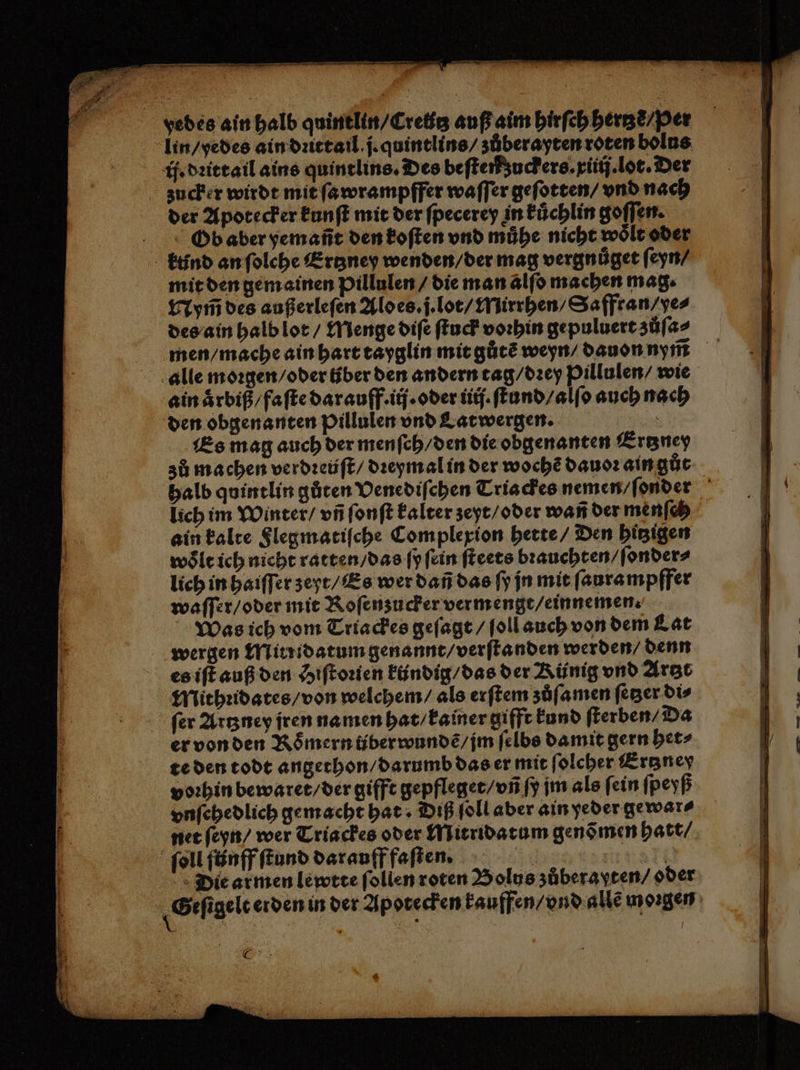 yedes ain halb quintlin/Creütz auß aim hirſch hertzẽ/Per
lin/yedes ain dꝛittail.j.quintlins/zůberayten roten bolus
ij.dꝛittail ains quintlins. Des beſten zuckers.xiiij.lot. Der
zucker wirdt mit ſawrampffer waſſer geſotten/vnd nach
der Apotecker kunſt mit der ſpecerey in kůchlin goſſen.
Ob aber yemañt den koſten vnd mühe nicht wölt oder
künd an ſolche Ertzney wenden/der mag vergnůget ſeyn/
mit den gemainen Pillulen/die man alſo machen mag.
Nym̃ des außerleſen Aloes.j.lot/Mirrhen/Saffran/ye⸗
des ain halb lot/Menge diſe ſtuck voꝛhin gepuluert zůſa⸗
men/mache ain hart tayglin mit gůtẽ weyn/dauon nym̃
alle moꝛgen/oder über den andern tag/dꝛey Pillulen/wie
ain årbiß/faſte darauff.iij.oder iiij.ſtund/alſo auch nach
den obgenanten Pillulen vnd Latwergen.
Es mag auch der menſch/den die obgenanten Ertzney
zů machen verdꝛeüſt/dꝛeymal in der wochẽ dauoꝛ ain gůt
halb quintlin gůten Venediſchen Triackes nemen/ſonder
lich im Winter/vñ ſonſt kalter zeyt/oder wañ der menſch
ain kalte Flegmatiſche Complexion hette/Den hitzigen
wölt ich nicht ratten/das ſy ſein ſteets bꝛauchten/ſonder⸗
lich in haiſſer zeyt/Es wer dañ das ſy jn mit ſaurampffer
waſſer/oder mit Roſenzucker vermengt/einnemen.
Was ich vom Triackes geſagt/ſoll auch von dem Lat
wergen Mitridatum genannt/verſtanden werden/denn
es iſt auß den Hiſtoꝛien kündig/das der Künig vnd Artzt
Mithꝛidates/von welchem/als erſtem zůſamen ſetzer di⸗
ſer Artzney jren namen hat/kainer gifft kund ſterben/Da
er von den Römern überwundẽ/jm ſelbs damit gern het⸗
te den todt angethon/darumb das er mit ſolcher Ertzney
voꝛhin bewaret/der gifft gepfleget/vñ ſy jm als ſein ſpeyß
vnſchedlich gemacht hat. Diß ſoll aber ain yeder gewar⸗
net ſeyn/wer Triackes oder Mitridatum genõmen hatt/
ſoll fünff ſtund darauff faſten.
Die armen lewtte ſollen roten Bolus zůberayten/oder
Geſigelt erden in der Apotecken kauffen/vnd allẽ moꝛgen
C